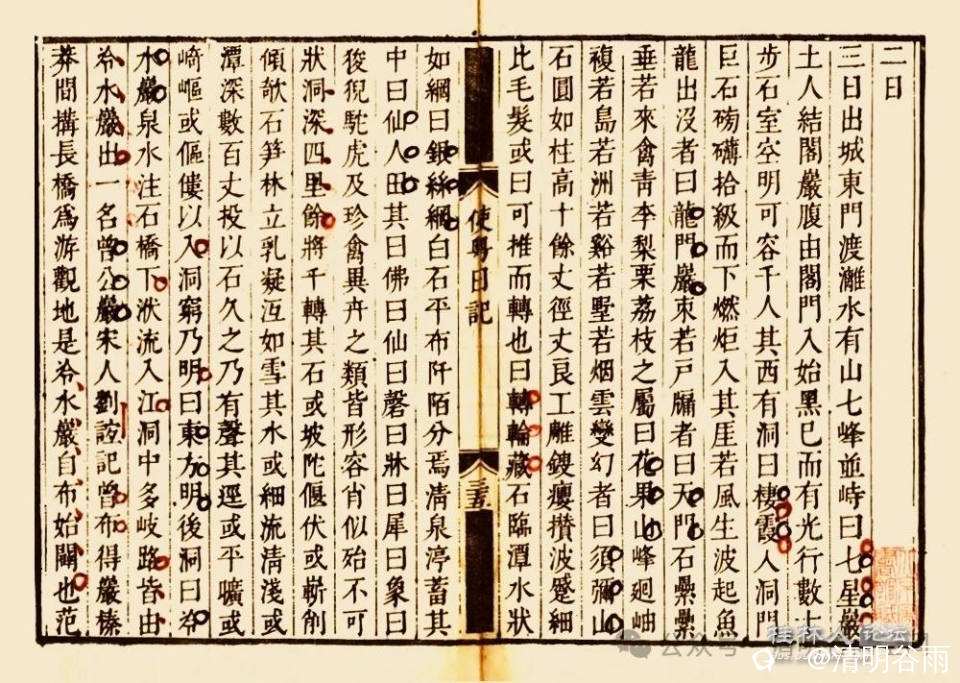 二日
三日出城東門渡灕水有山七峰並峙曰七星巖
土人結閣巖腹由閣門入始黑已而有光行數十
步石室空明可容千人其西有洞曰棲霞入洞門
巨石磅礴拾級而下燃炬入其厓若風生波起魚
龍出沒者曰龍門巖東若戸牖者曰天門石纍纍
垂若來禽靑李梨栗荔枝之屬曰花果山峰廻岫
複若島若洲若谿若墅若烟雲變幻者曰須彌山
石圓如柱高十餘丈徑丈良工雕鎪癭攢波蹙細
比毛髮或曰可推而轉也曰轉輪藏石臨潭水狀
使粤日記
三五
如網曰銀絲網白石平布阡陌分焉淸泉渟蓄其
中曰仙人田其曰佛曰仙曰磬曰牀曰犀曰象曰
狻猊駝虎及珍禽異卉之類皆形容肖似殆不可
狀洞深四里餘將千轉其石或坡陀偃伏或嶄削
傾欹石笋林立乳凝沍如雪其水或細流淸淺或
潭深數百丈投以石久之乃有聲其逕或平曠或
崎嶇或傴僂以入洞窮乃明曰東方明後洞曰冷
水巖泉水注石橋下洑流入江洞中多岐路皆由
冷水巖出一名曾公巖宋人劉誼記曾布得巖榛
莽間搆長橋爲游觀地是冷水巖自布始闢也范
桂林人论坛
公众号
@清明谷雨